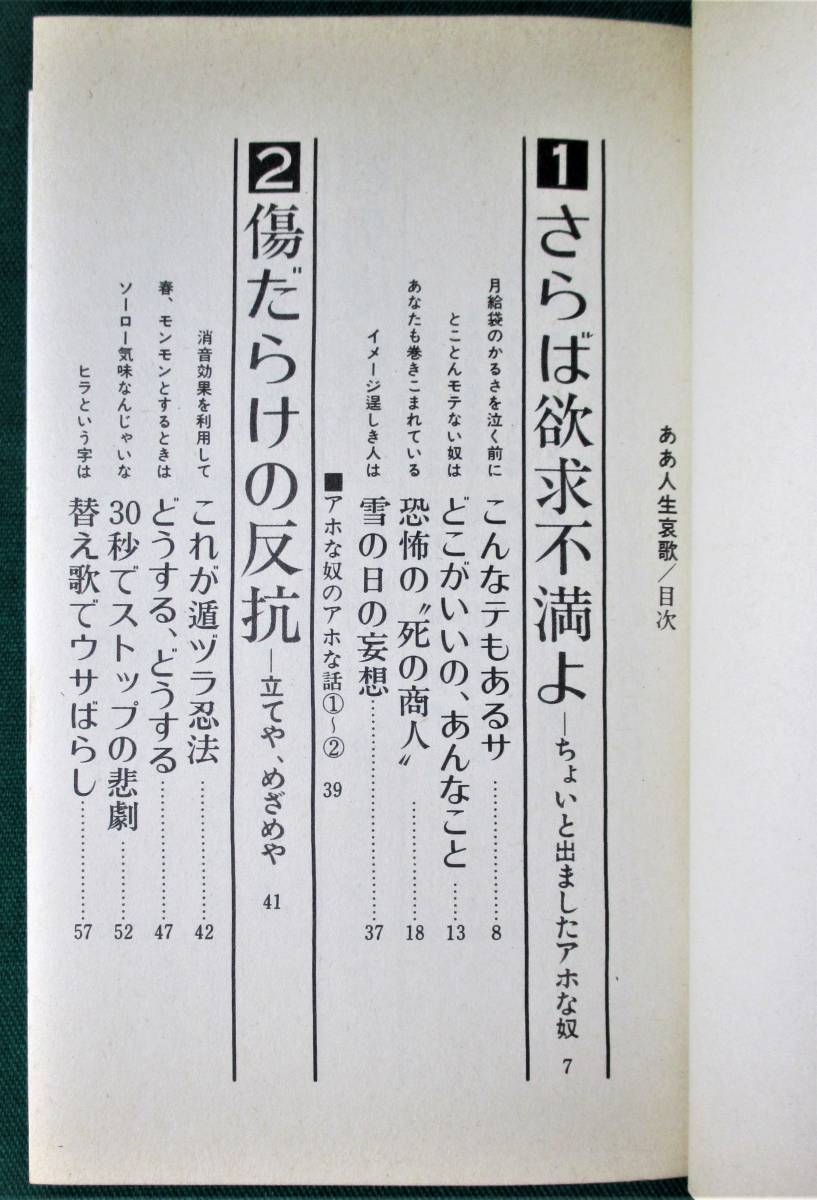 ああ人生哀歌/目次
1 さらば欲求不満よ―ちょいと出ましたアホな奴 7
月給袋のかるさを泣く前に こんなテもあるサ…………………8
とことんモテない奴は どこがいいの、あんなこと……13
あなたも巻きこまれている 恐怖の〝死の商人〟………………18
イメージ逞しき人は 雪の日の妄想………………………37
■アホな奴のアホな話①~② 39
2 傷だらけの反抗―立てや、めざめや 41
消音効果を利用して これが遁ヅラ忍法…………………42
春、モンモンとするときは どうする、どうする………………47
ソーロー気味なんじゃいな 30秒でストップの悲劇…………52
ヒラという字は 替え歌でウサばらし………………57